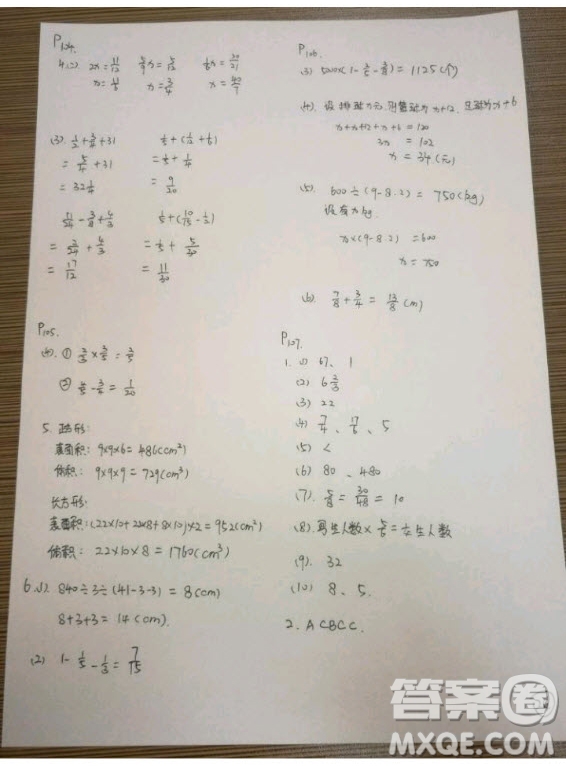 P104.
4.(2) 2x=11/12 x=1/3 x=5/12 x=3/4 x=20/21 x=40/7
(3) 1/2+3/4+31
= 5/4+31
= 32 1/4
= 1/5+1/4
= 9/20
11/24-3/8+4/3
= 2/24+4/3
= 17/12
= 11/30
P105.
(4). ① 
② 4/5-3/4=1/20
5. 正方形:
表面积: 9×9×6=486(cm²)
体积: 9×9×9=729(cm³)
长方形:
表面积:(22×10+22×8+8×10)×2=952(cm²)
体积: 22×10×8=1760(cm³)
6.(1). 840÷3÷(41-3-3)=8(cm)
8+3+3=14(cm).
(2) 1-1/5-1/3=7/15
P106.
=1125(个)
(4). 设排球为x元,则篮球为x+12,足球为x+6
x+x+12+x+6=120
3x=102
x=34(元)
(5). 600÷(9-8.2)=750(kg)
x×(9-8.2)=600
x=750
(6) 7/8+3/4=13/8(m)
P107.
1. (1) 67、1
(2) 6 2/3
(3) 22
(4) 7/4、17/6、5
(5) <
(6) 80、480
(7). 5/8=30/48=10
(8). 男生人数×5/6=女生人数
(9). 32
(10) 8、5.
2. ACBCC.
答案圈
MXQE.COM